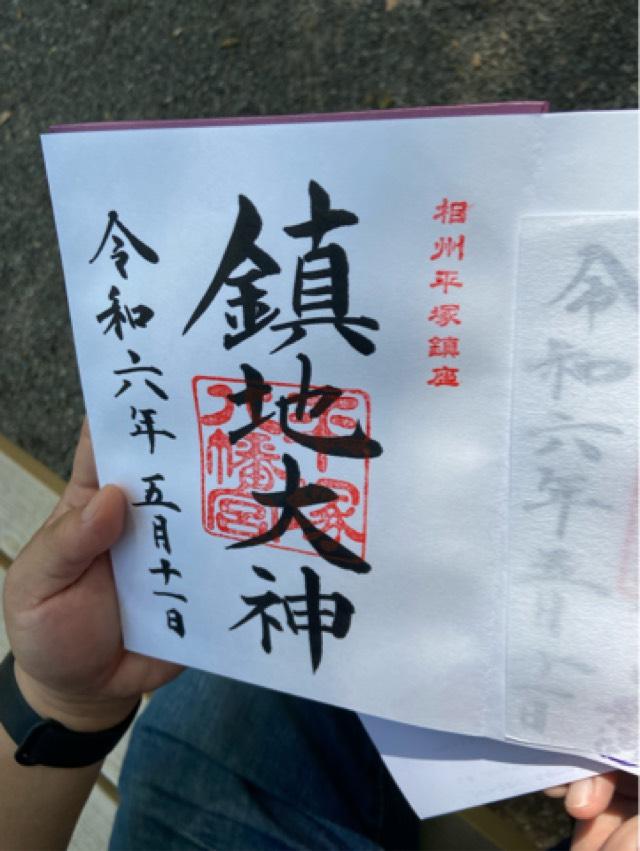 相州平塚鎮座
鎮地大神
平塚
八幡宮
令和六年 五月十一日
令和六年五月十一日